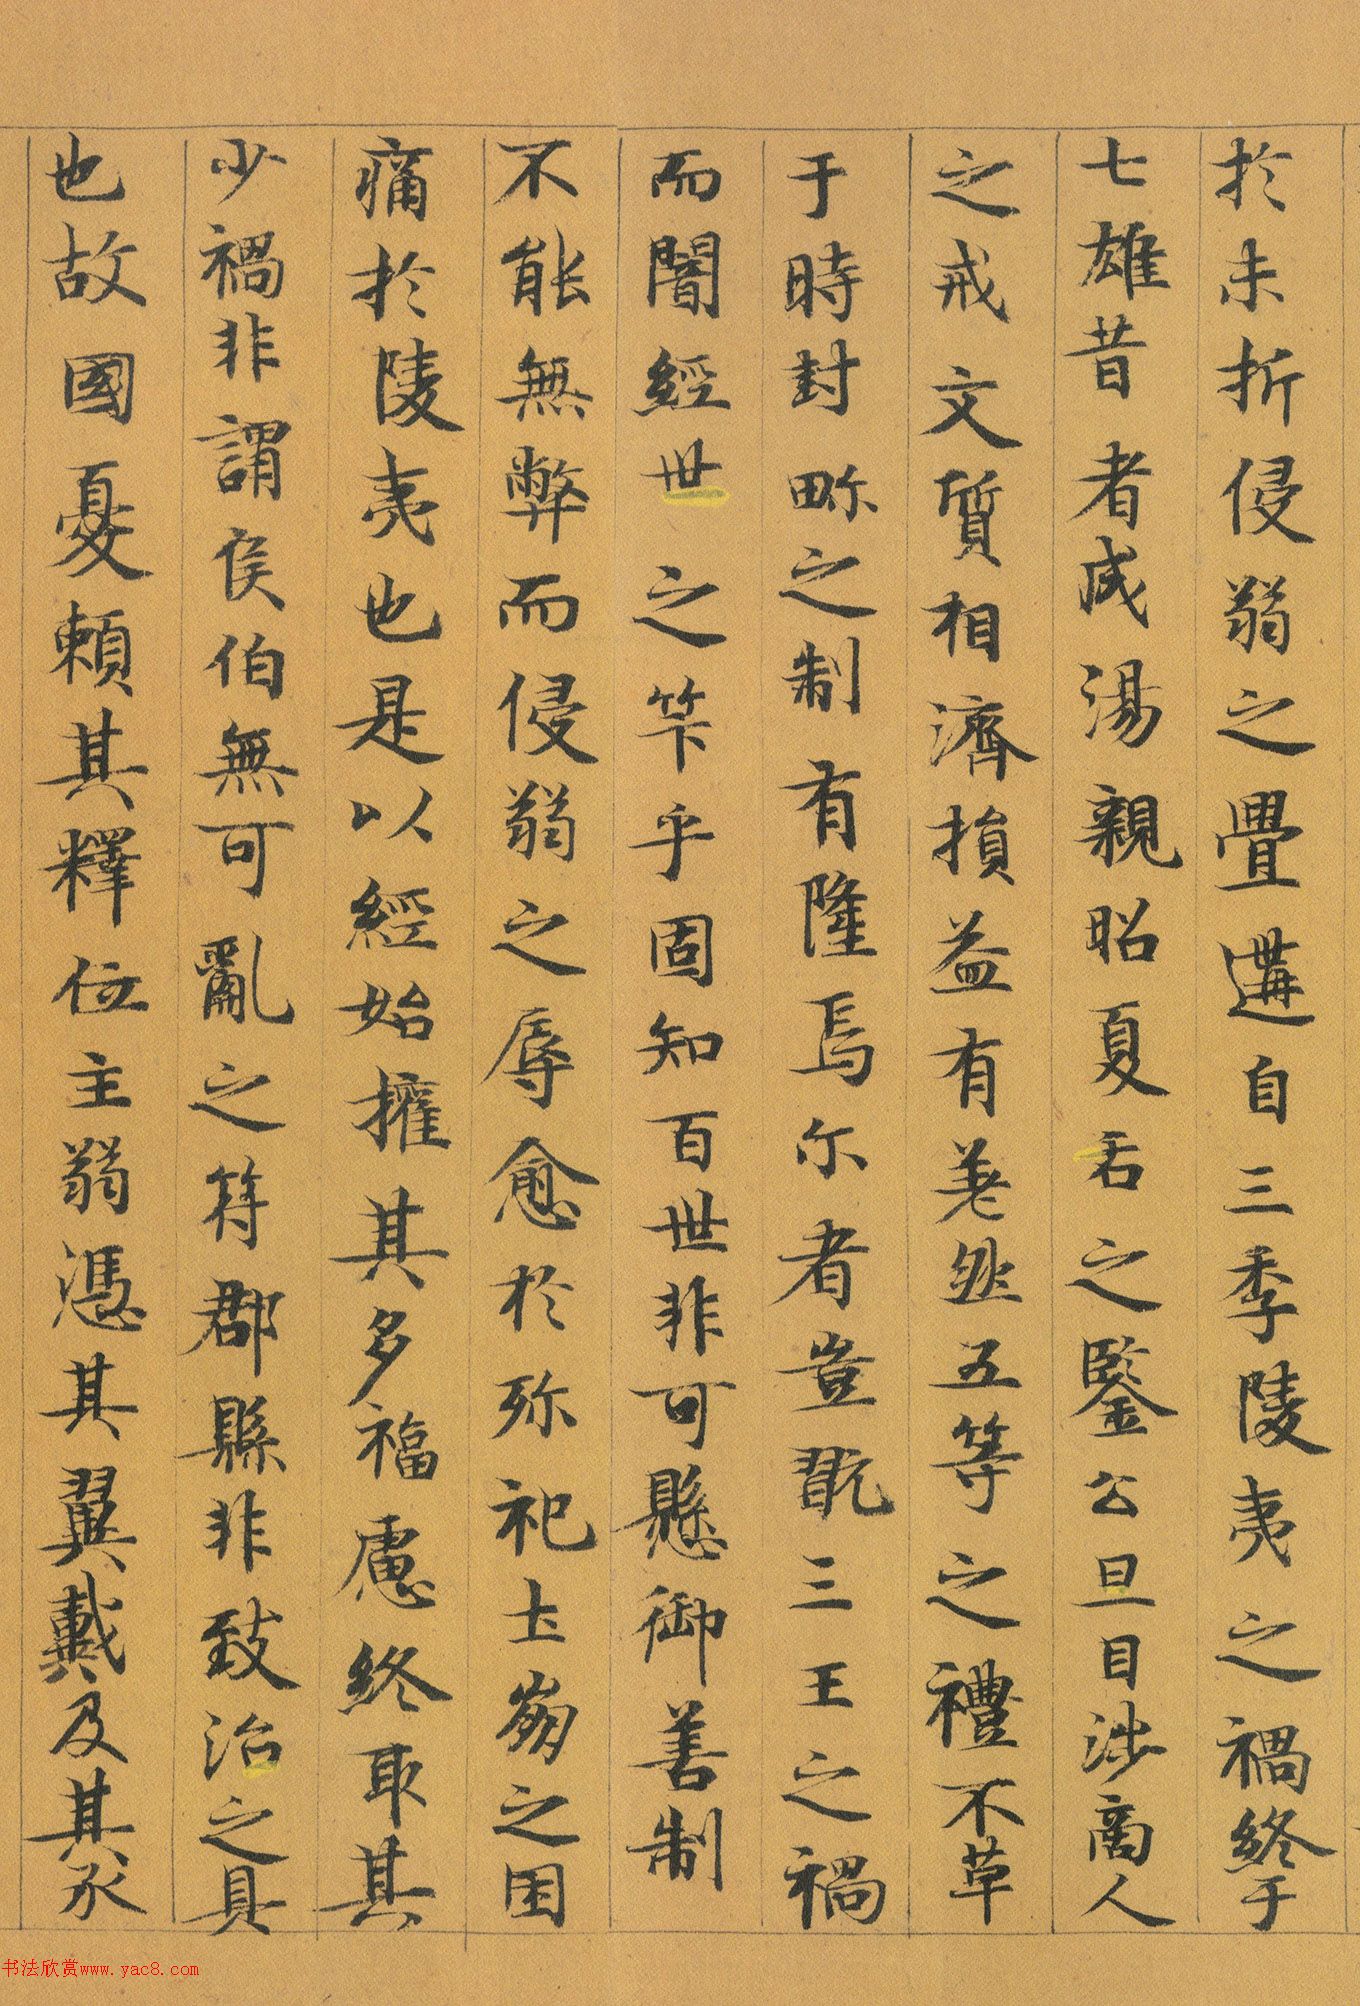 於未折侵弱之舋遘自三季陵夷之禍終于
七雄昔者成湯親昭夏后之鑒公旦目涉商人
之戒文質相濟損益有差然五等之禮不革
于時封畛之制有隆焉尔者豈翫三王之禍
而闇經世之筭乎固知百世非可懸御善制
不能無弊而侵弱之辱愈於殄祀土崩之困
痛於陵夷也是以經始權其多福慮終取其
少禍非謂侯伯無可亂之符郡縣非致治之具
也故國憂賴其釋位主弱憑其翼戴及其承
书法欣赏www.yac8.com